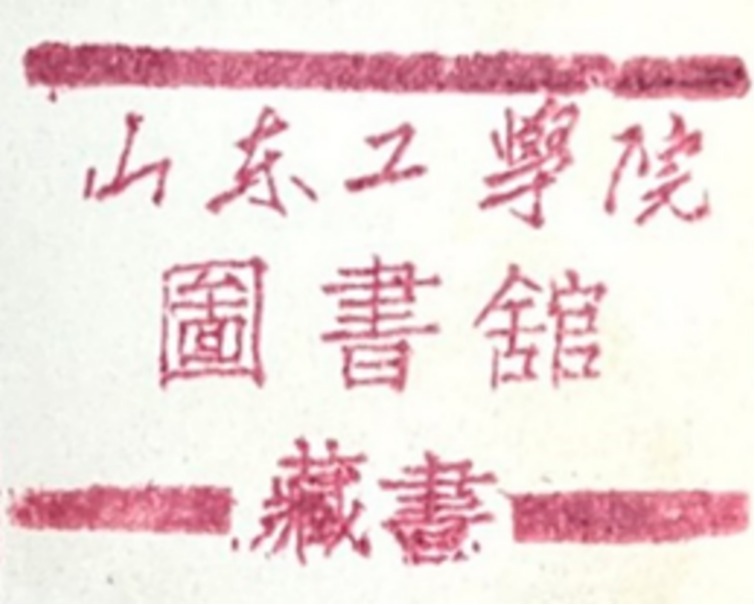 山东工學院
圖書舘
藏書